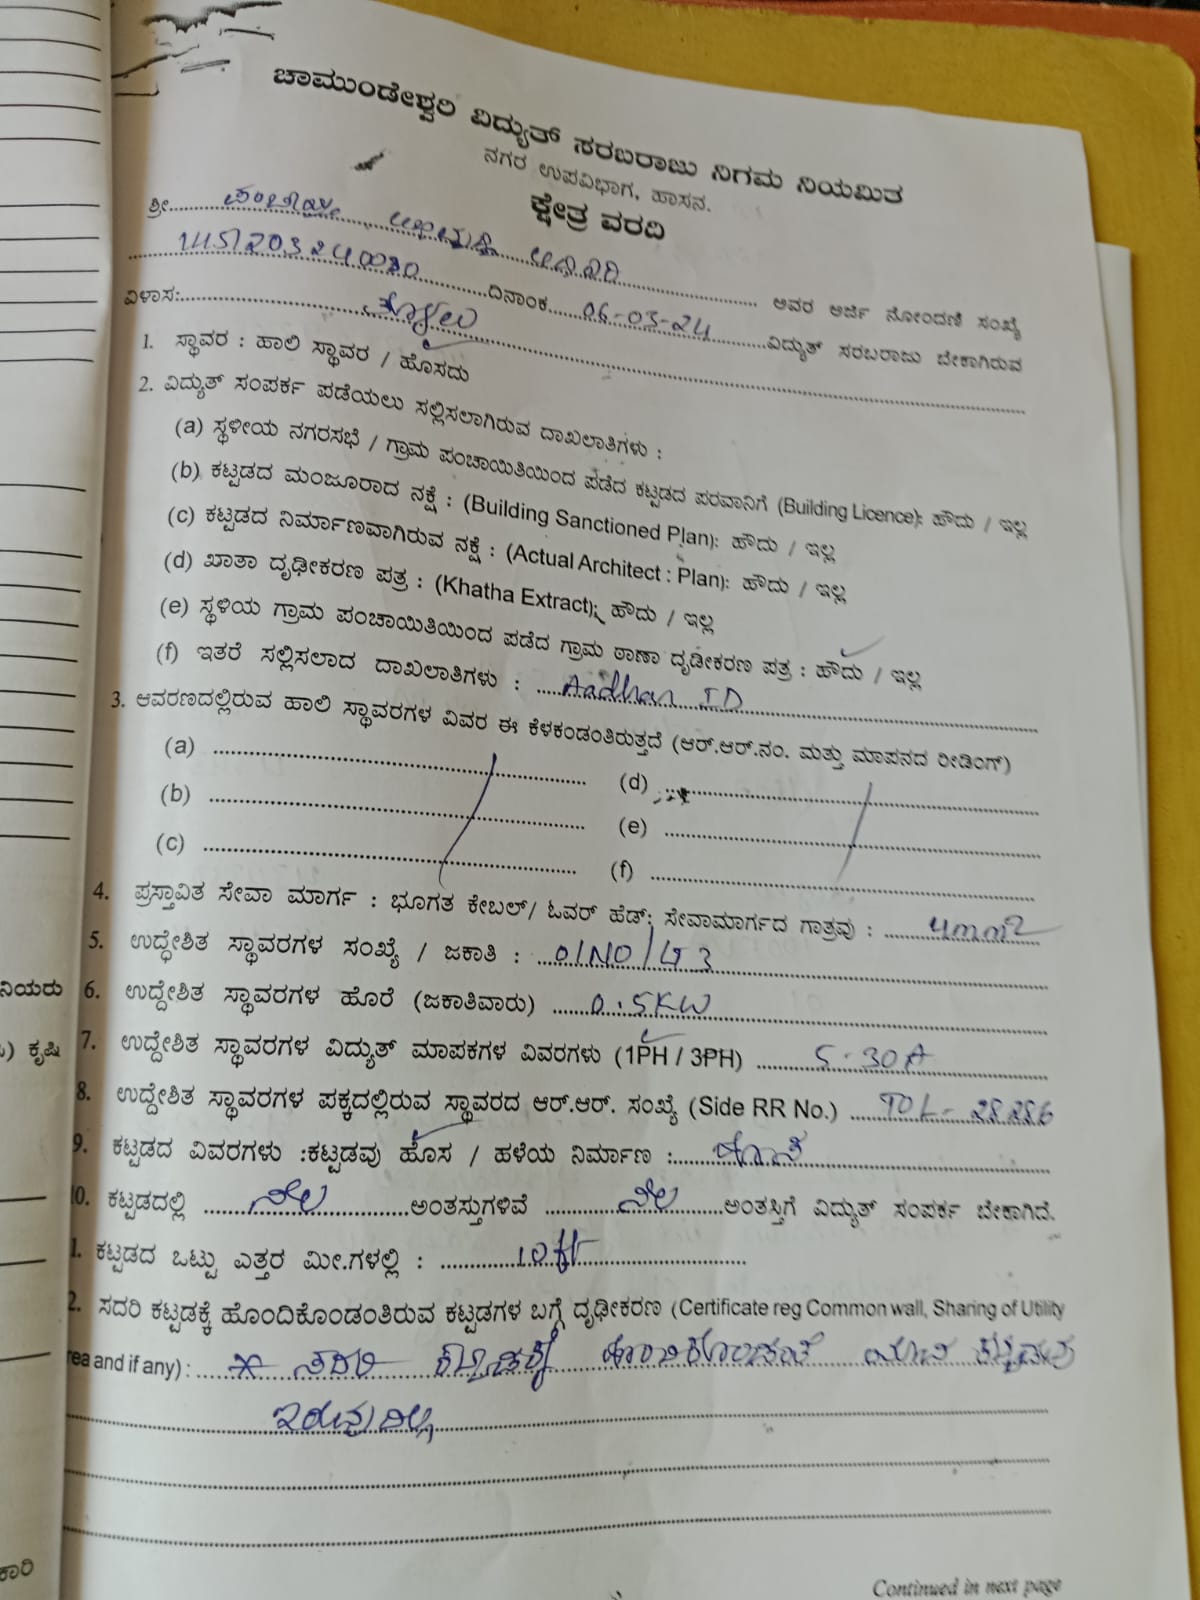 ಚಾಮುಂಡೇಶ್ವರಿ ವಿದ್ಯುತ್ ಸರಬರಾಜು ನಿಗಮ ನಿಯಮಿತ
ನಗರ ಉಪವಿಭಾಗ, ಹಾಸನ.
ಕ್ಷೇತ್ರ ವರದಿ
ಶ್ರೀ.......... ಅವರ ಅರ್ಜಿ ನೋಂದಣಿ ಸಂಖ್ಯೆ
ದಿನಾಂಕ....06-03-24.......ವಿದ್ಯುತ್ ಸರಬರಾಜು ಬೇಕಾಗಿರುವ
ವಿಳಾಸ:..........
1. ಸ್ಥಾವರ : ಹಾಲಿ ಸ್ಥಾವರ / ಹೊಸದು
2. ವಿದ್ಯುತ್ ಸಂಪರ್ಕ ಪಡೆಯಲು ಸಲ್ಲಿಸಲಾಗಿರುವ ದಾಖಲಾತಿಗಳು :
(a) ಸ್ಥಳೀಯ ನಗರಸಭೆ / ಗ್ರಾಮ ಪಂಚಾಯಿತಿಯಿಂದ ಪಡೆದ ಕಟ್ಟಡದ ಪರವಾನಿಗೆ (Building Licence): ಹೌದು / ಇಲ್ಲ
(b) ಕಟ್ಟಡದ ಮಂಜೂರಾದ ನಕ್ಷೆ : (Building Sanctioned Plan): ಹೌದು / ಇಲ್ಲ
(c) ಕಟ್ಟಡದ ನಿರ್ಮಾಣವಾಗಿರುವ ನಕ್ಷೆ : (Actual Architect : Plan): ಹೌದು / ಇಲ್ಲ
(d) ಖಾತಾ ದೃಢೀಕರಣ ಪತ್ರ : (Khatha Extract): ಹೌದು / ಇಲ್ಲ
(e) ಸ್ಥಳಿಯ ಗ್ರಾಮ ಪಂಚಾಯಿತಿಯಿಂದ ಪಡೆದ ಗ್ರಾಮ ಠಾಣಾ ದೃಢೀಕರಣ ಪತ್ರ : ಹೌದು / ಇಲ್ಲ
(f) ಇತರೆ ಸಲ್ಲಿಸಲಾದ ದಾಖಲಾತಿಗಳು : ....Aadhar ID
3. ಆವರಣದಲ್ಲಿರುವ ಹಾಲಿ ಸ್ಥಾವರಗಳ ವಿವರ ಈ ಕೆಳಕಂಡಂತಿರುತ್ತದೆ (ಆರ್.ಆರ್.ನಂ. ಮತ್ತು ಮಾಪನದ ರೀಡಿಂಗ್)
(a) .......... (d) ..........
(b) .......... (e) ..........
(c) .......... (f) ..........
4. ಪ್ರಸ್ತಾವಿತ ಸೇವಾ ಮಾರ್ಗ : ಭೂಗತ ಕೇಬಲ್/ ಓವರ್ ಹೆಡ್; ಸೇವಾಮಾರ್ಗದ ಗಾತ್ರವು : ....4mm2
5. ಉದ್ಧೇಶಿತ ಸ್ಥಾವರಗಳ ಸಂಖ್ಯೆ / ಜಕಾತಿ : ..01NO/LT3
6. ಉದ್ದೇಶಿತ ಸ್ಥಾವರಗಳ ಹೊರೆ (ಜಕಾತಿವಾರು) ....0.5KW
7. ಉದ್ದೇಶಿತ ಸ್ಥಾವರಗಳ ವಿದ್ಯುತ್ ಮಾಪಕಗಳ ವಿವರಗಳು (1PH / 3PH) ....5-30A
8. ಉದ್ದೇಶಿತ ಸ್ಥಾವರಗಳ ಪಕ್ಕದಲ್ಲಿರುವ ಸ್ಥಾವರದ ಆರ್.ಆರ್. ಸಂಖ್ಯೆ (Side RR No.) ...TOL-28286
9. ಕಟ್ಟಡದ ವಿವರಗಳು :ಕಟ್ಟಡವು ಹೊಸ / ಹಳೆಯ ನಿರ್ಮಾಣ :....ಹೊಸ
10. ಕಟ್ಟಡದಲ್ಲಿ ....ನೆಲ........ಅಂತಸ್ತುಗಳಿವೆ ......ನೆಲ....ಅಂತಸ್ತಿಗೆ ವಿದ್ಯುತ್ ಸಂಪರ್ಕ ಬೇಕಾಗಿದೆ.
1. ಕಟ್ಟಡದ ಒಟ್ಟು ಎತ್ತರ ಮೀ.ಗಳಲ್ಲಿ : ......10ft
2. ಸದರಿ ಕಟ್ಟಡಕ್ಕೆ ಹೊಂದಿಕೊಂಡಂತಿರುವ ಕಟ್ಟಡಗಳ ಬಗ್ಗೆ ದೃಢೀಕರಣ (Certificate reg Common wall, Sharing of Utility
rea and if any) : ....ಸದರಿ ಕಟ್ಟಡಕ್ಕೆ ಹೊಂದಿಕೊಂಡಂತೆ ಯಾವ ಕಟ್ಟಡವು
ಇರುವುದಿಲ್ಲ
Continued in next page
ನಿಯರು
) ಕೃಷಿ
ಕಾರಿ